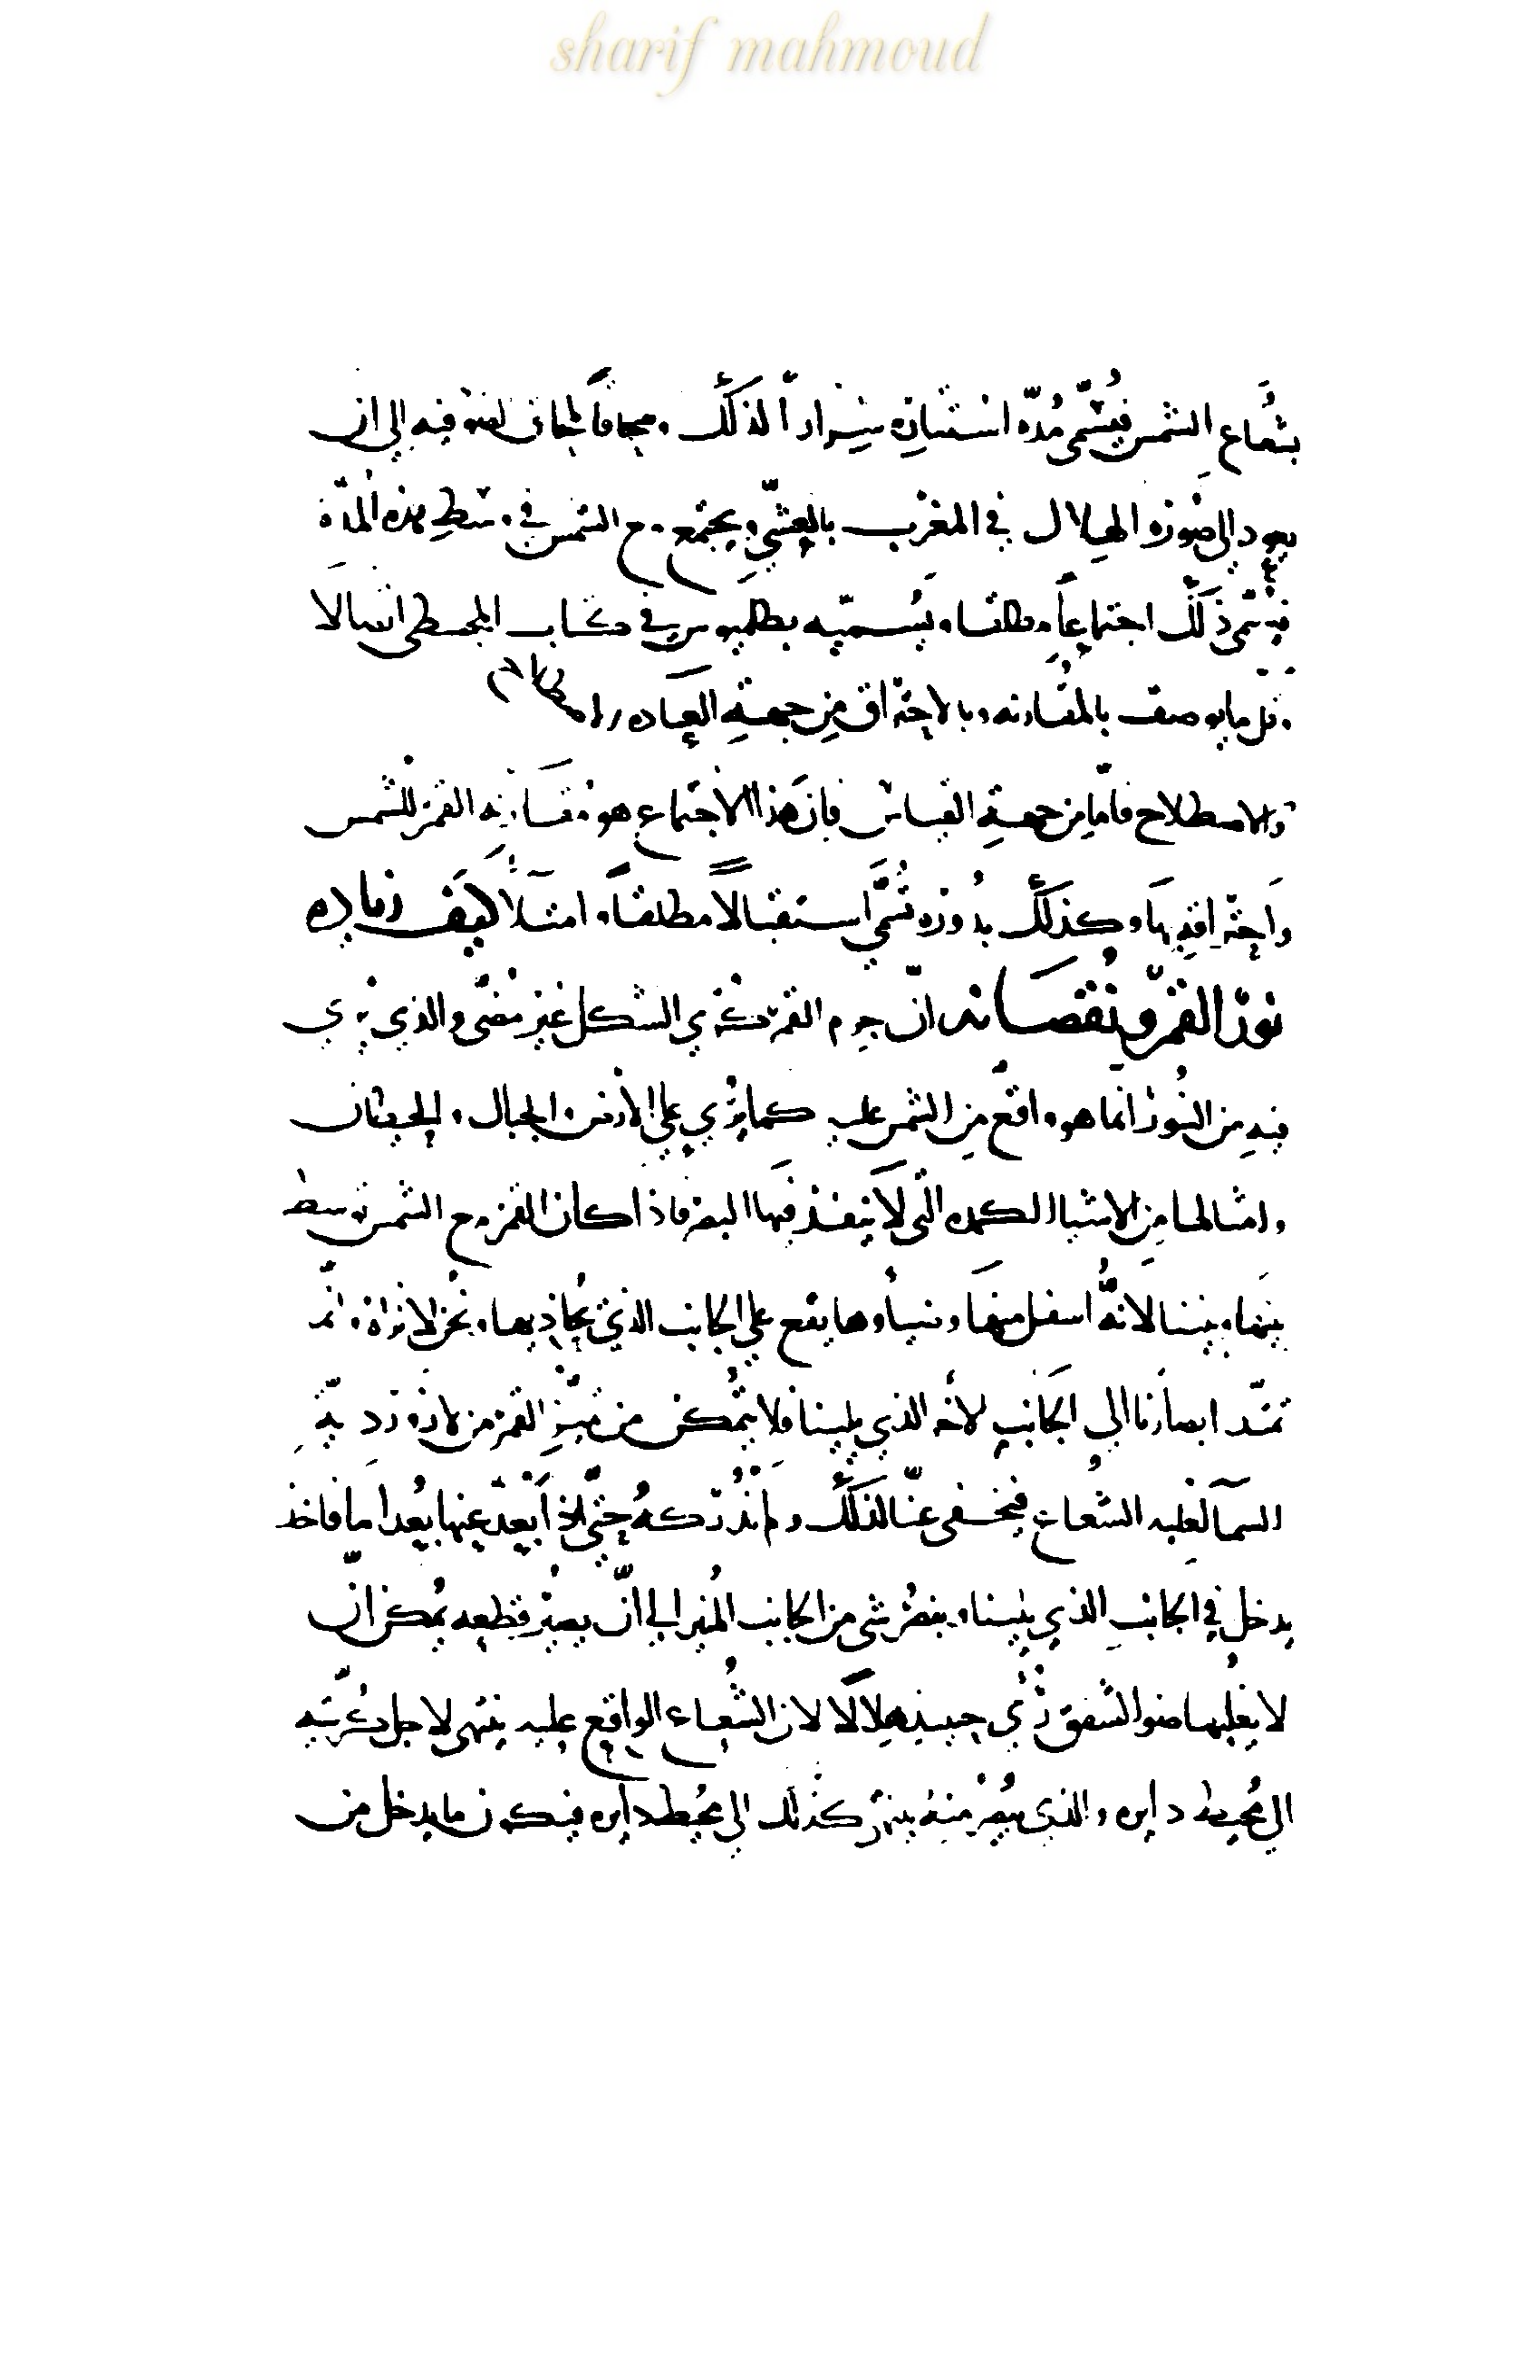 sharif mahmoud
بشُعاع الشمس فيُسَمّى مُدّة استتاره سِراراً لذلك ومحاقاً لمحاق الضوء فيه إلى ان
يعود الى صورة الهلال في المغرب بالعشيّ ويجتمع مع الشمس في وسط هذه المدّة
فيسمّى ذلك اجتماعاً مطلقا ويُسمّيه بطلميوس في كتاب المجسطي اتصالا
وقل ما يوصف بالمقارنه وبالاحتراق من جهة العاده
والاصطلاح فامّا من جهة القياس فان هذا الاجتماع هو مقارنة القمر للشمس
واحتراقه بها وكذلك بدوره تسمّى استقبالاً مطلقاً وامتلاً كيف زياده
نور القمر ونقصانه انّ جرم القمر كُرَي الشكل غير مضىء والذي يرى
فيه من النور انما هو واقع من الشمس عليه كما يُرى على الارض والجبال والحيطان
وامثالها من الاشيا الكمده التي لا ينفذ فيها البصر فاذا كان القمر مع الشمس توسط
بينها وبيننا لانهُ اسفل منها وضياوها يقع على الجانب الذي يحاذيها ونحن لا نراهُ وانمّا
تمتدّ ابصارنا الى الجانب الاخر الذي يلينا فلا يتمكن من تمييز القمر من لازوردية
السمآ لغلبه الشعاع فيخفى عنّا لذلك ولم ندركهُ حتّى اذا أبعد عنها بُعدا ما فاخذ
يدخل في الجانب الذي يلينا وببصر شى من الجانب المنير الى انّ يصير قطعه يمكن ان
لا يغلبها ضو الشفق رُئي حينيذ هلالاً لان الشُعاع الواقع عليه ينتهى لاجل كُريّته
الى مُحيط دايره والذي يبصر منهُ ينتهى كذلك الى مُحيط دايره فيكون ما يدخل من